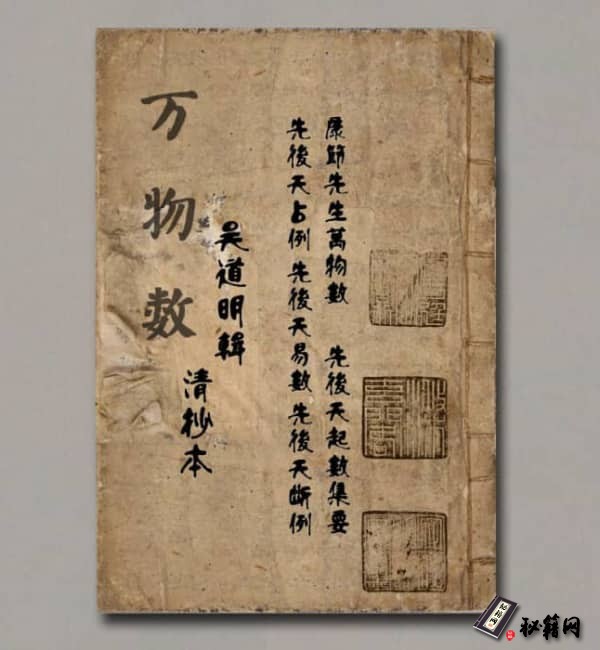 康節先生萬物數 先後天起數集要
先後天占例 先後天易數 先後天断例
吴道明輯
清抄本
万物数
秘籍网